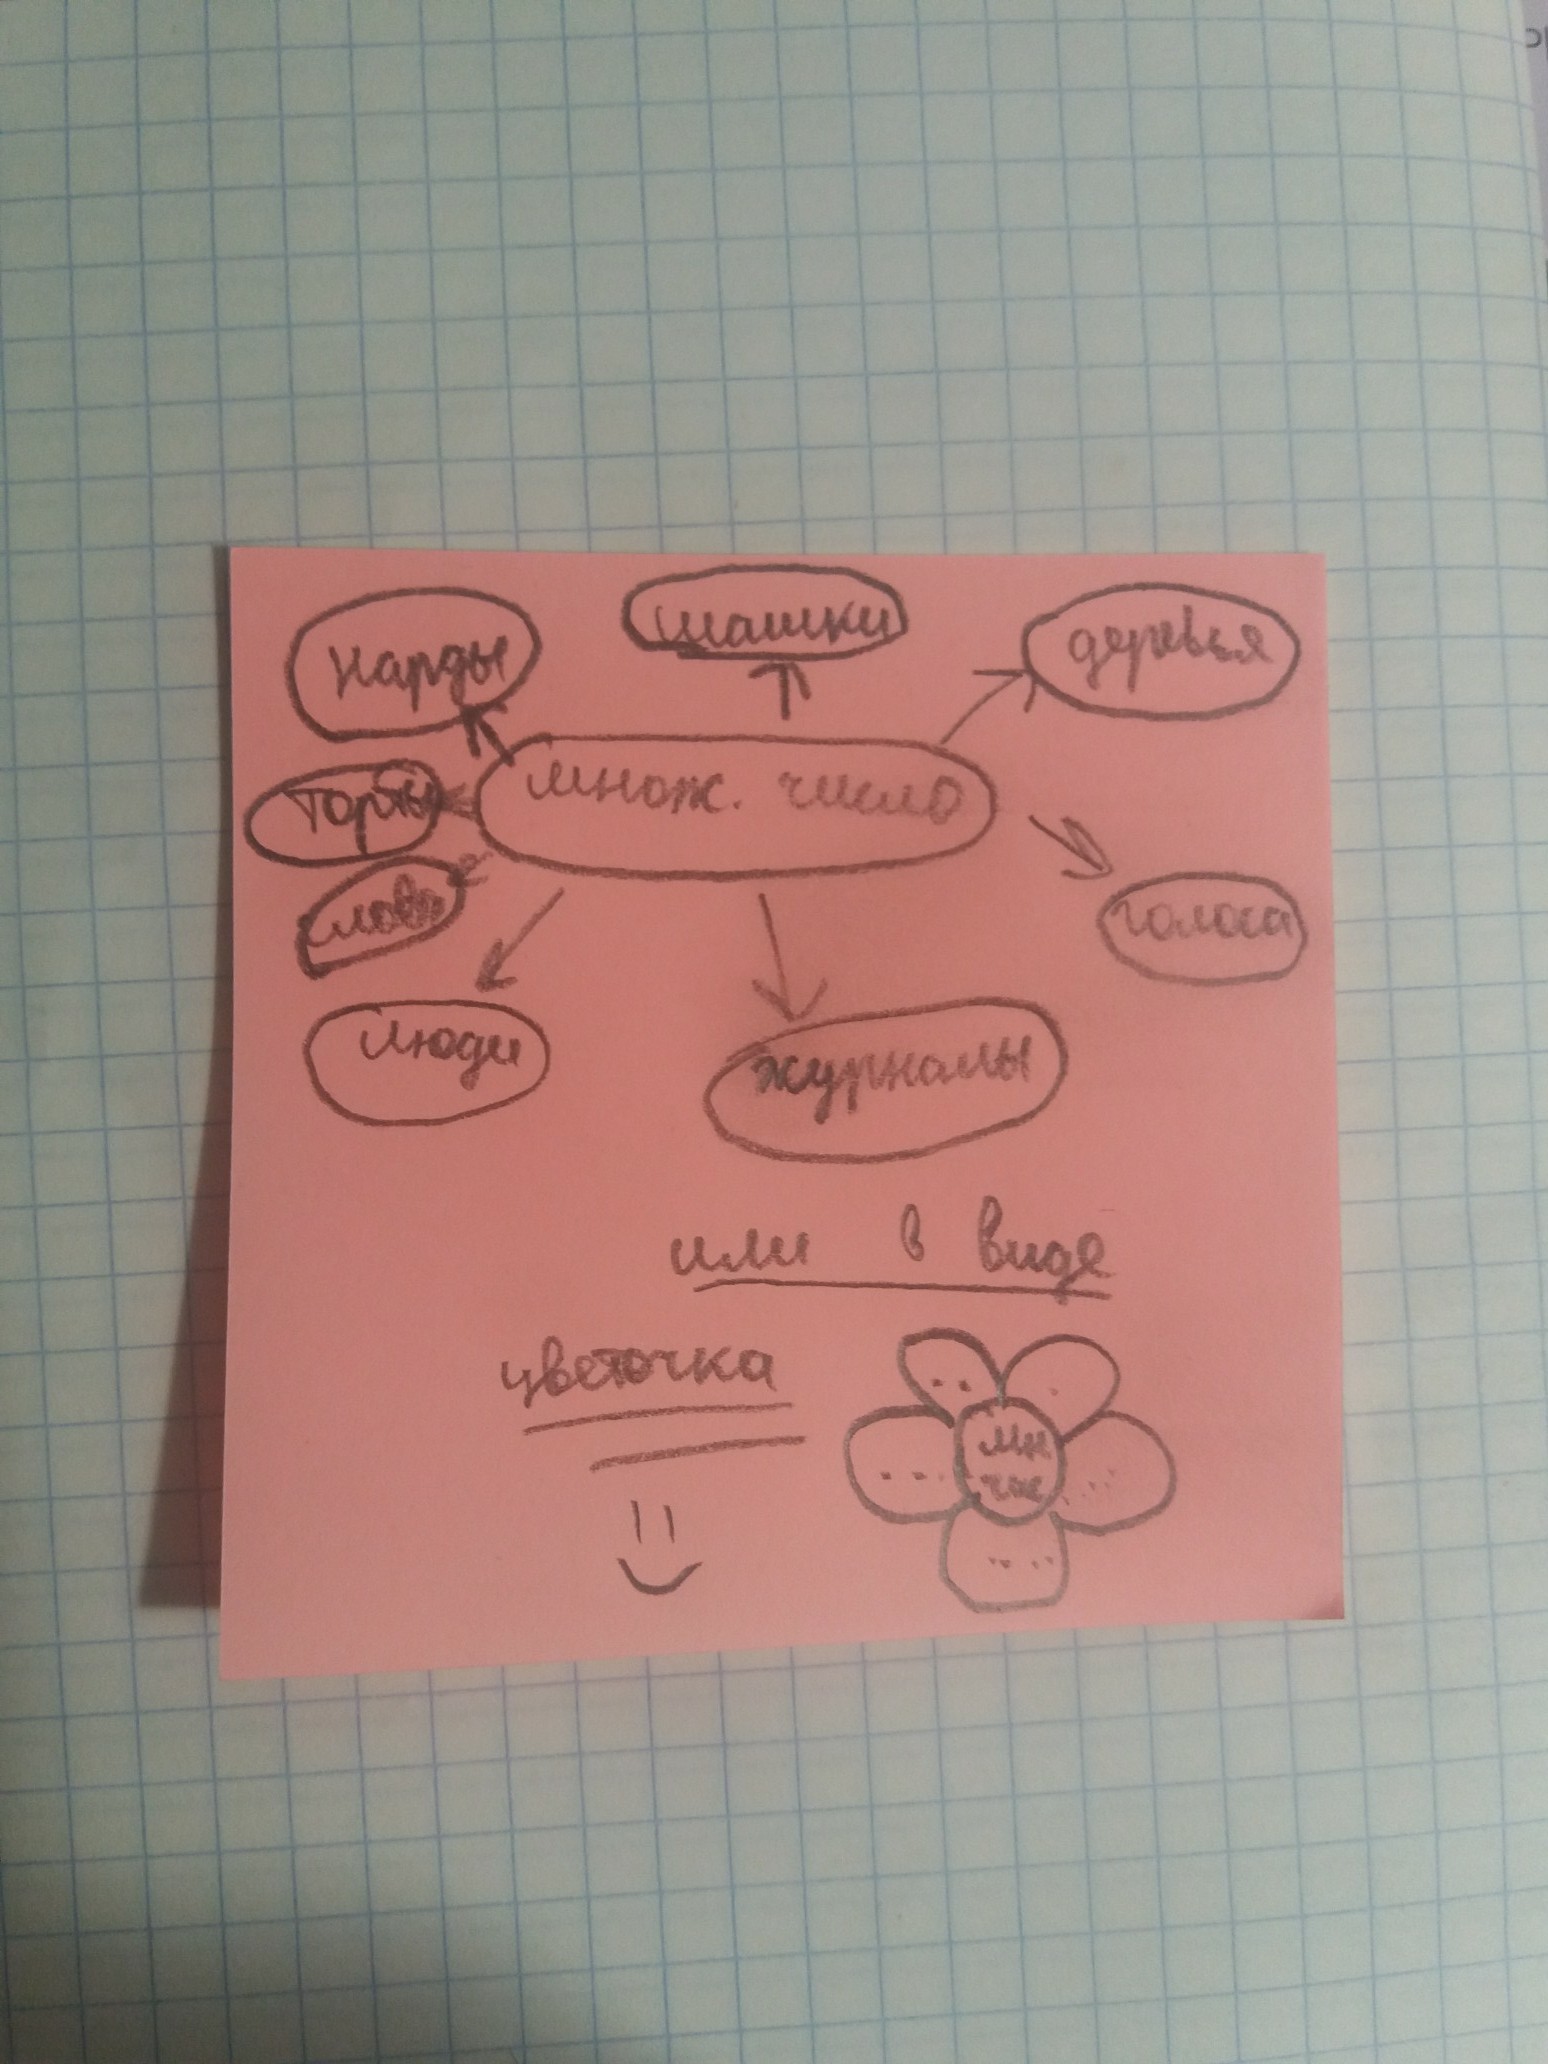 нарды
шашки
деревья
торты
множ. число
слова
голоса
люди
журналы
или в виде
цветочка
мн
чис